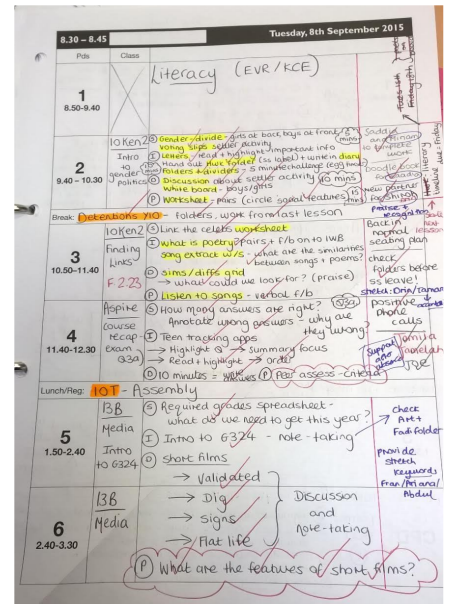 8.30 - 8.45
Tuesday, 8th September 2015
Pds
Class
1
8.50-9.40
Literacy (EVR/KCE)
2
9.40 - 10.30
10Ken2
Intro to gender politics
(S) Gender divide - girls at back, boys at front
voting slips settler activity
(I) Letters - read + highlight important info
(D) Hand out Huer folder (SS label) + write in diary
Folders + dividers - 5 minute challenge (egg timer)
(D) Discussion about settler activity 10 mins
White board - boys/girls
(P) Worksheet - pairs (circle social features) 15 mins
to complete work
new partner for
Break: Detentions Y10 - folders, work from last lesson
3
10.50-11.40
10Ken2
Finding Links
F.2.23
(S) Link the celebs worksheet
(I) What is poetry? Pairs + f/b on to IWB
song extract w/s - what are the similarities
between songs + poems?
(D) sims/diffs grid
→ what could we look for? (praise)
(P) Listen to songs - verbal f/b
Praise + recognition
Back in normal seating plan
check folders before ss leave!
4
11.40-12.30
Aspire
course recap - exam - Q3a
(S) How many answers are right? Q3a
Annotate wrong answers - why are
they wrong?
(I) Teen tracking apps
→ Highlight Q → Summary focus
→ Read + highlight → order
(D) 10 minutes = write answers (P) Peer assess - criteria
positive phone calls
Support after absence
Joe
Lunch/Reg: 10T - Assembly
5
1.50-2.40
13B
Media
Intro to G324
(S) Required grades spreadsheet -
what do we need to get this year?
(I) Intro to G324 - note-taking
(D) Short films
→ Validated
Check Art + Fadi folder
Provide stretch keywords
Fran/Ariana/Abdul
6
2.40-3.30
13B
Media
→ Dig
→ Signs
→ Flat life
Discussion and note-taking
(P) What are the features of short films?